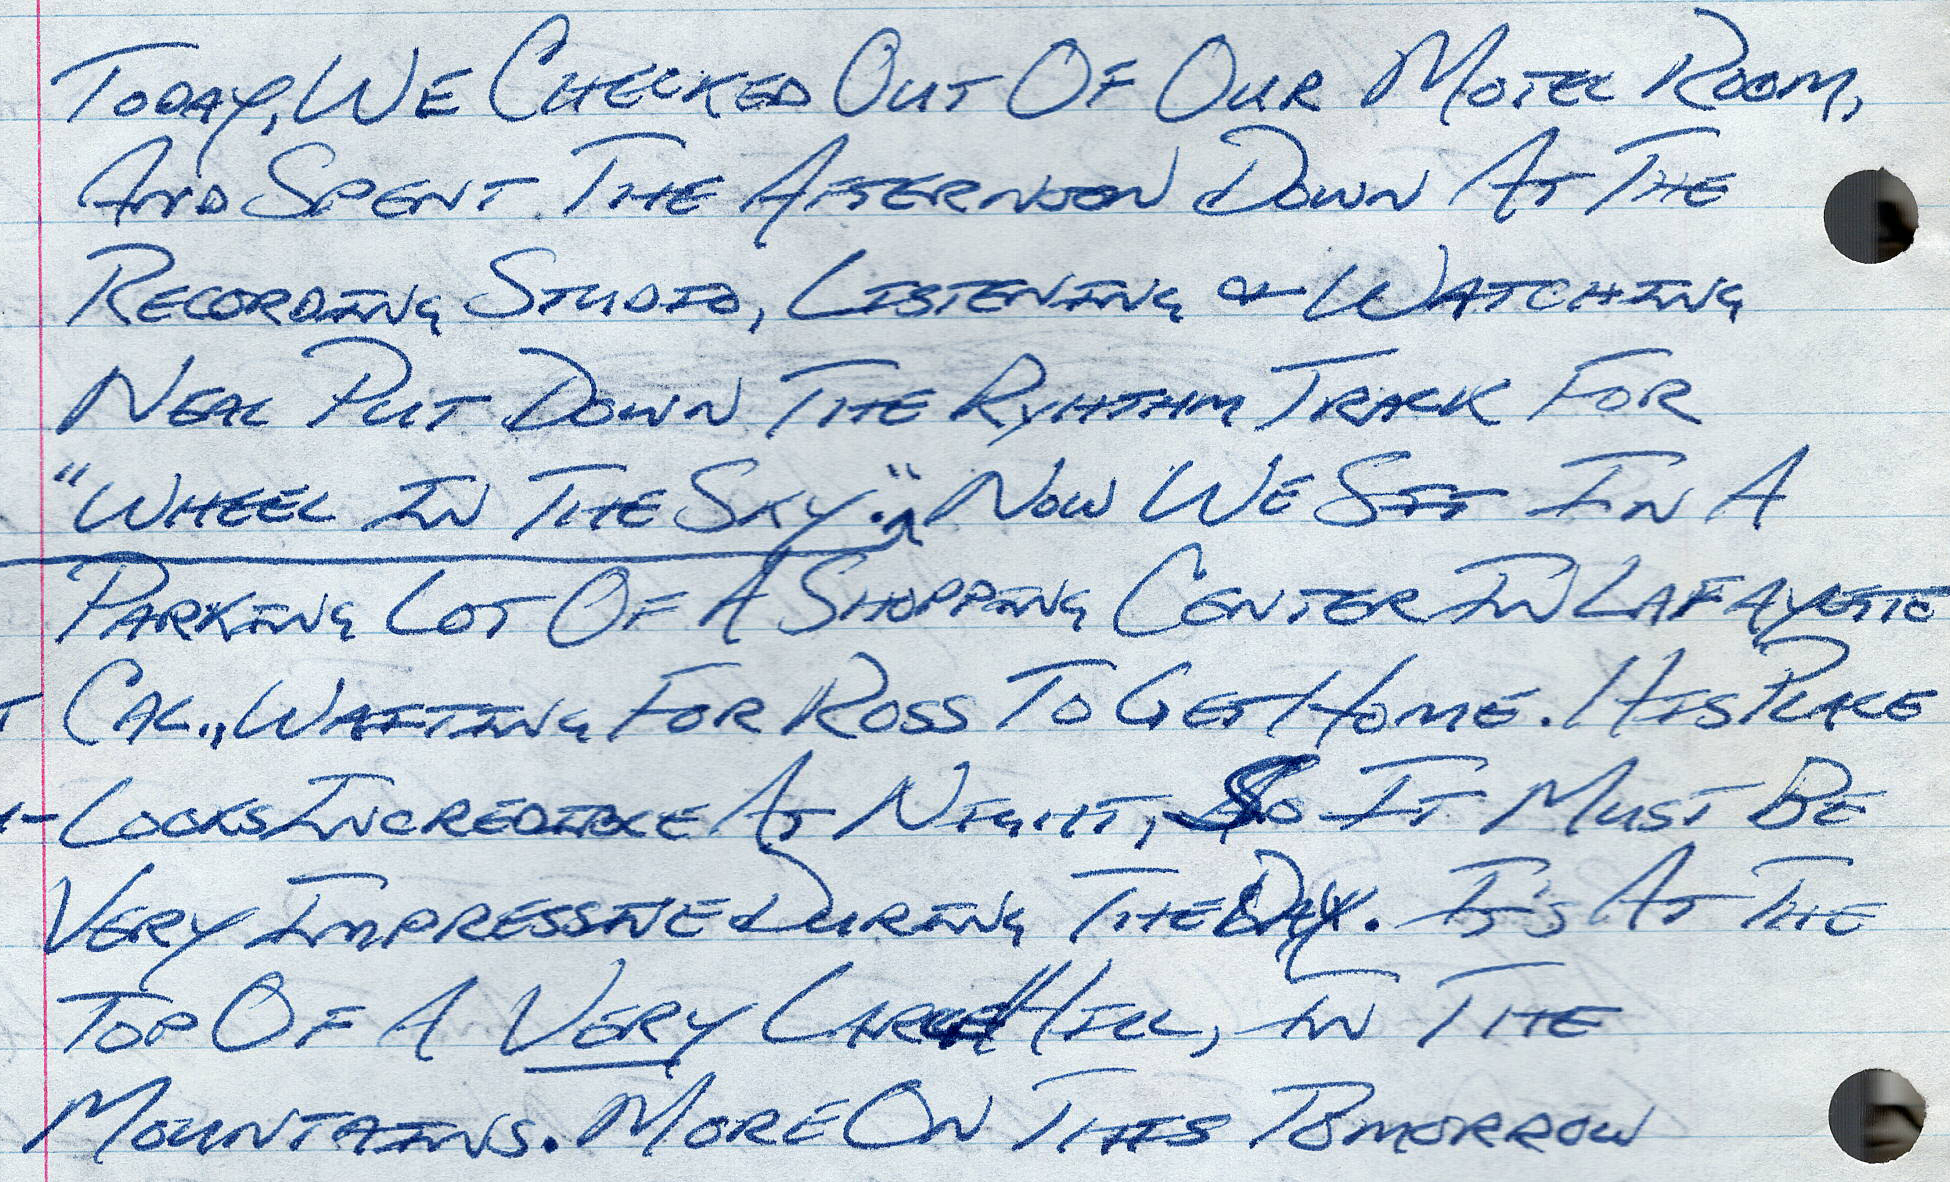 Today, We Checked Out Of Our Motel Room,
And Spent The Afternoon Down At The
Recording Studio, Listening & Watching
Neal Put Down The Ryhthm Track For
"Wheel In The Sky." Now We Sit In A
Parking Lot Of A Shopping Center In Lafayette
Cal., Waiting For Ross To Get Home. His Place
Looks Incredible At Night, So It Must Be
Very Impressive During The Day. It's At The
Top Of A Very Large Hill, In The
Mountains. More On This Tomorrow